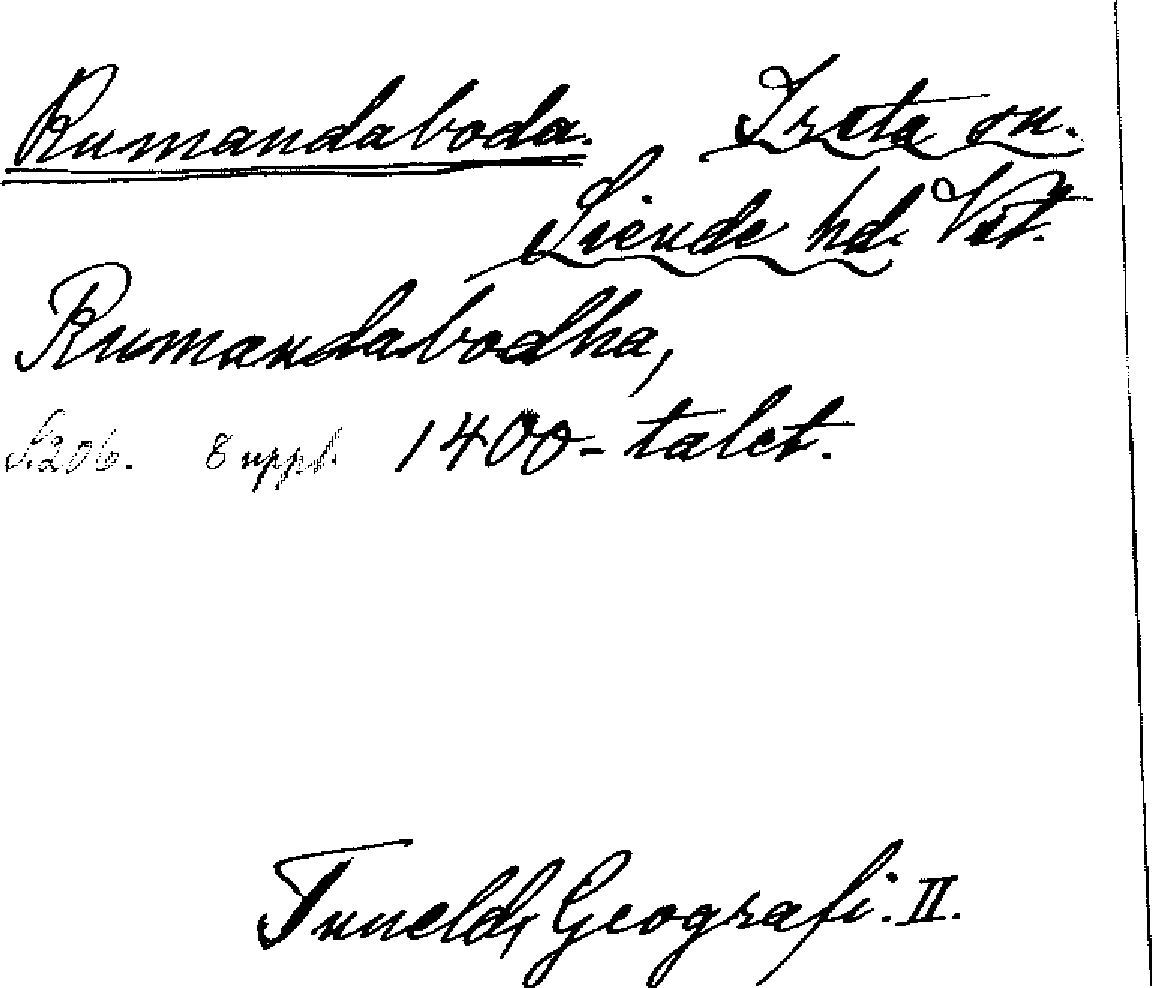 Rumandaboda. Irsta sn.
Siende hd. Vstm.
Rumandabodha,
S. 206. 8 uppl. 1400-talet.
Tuneld, Geografi. II.